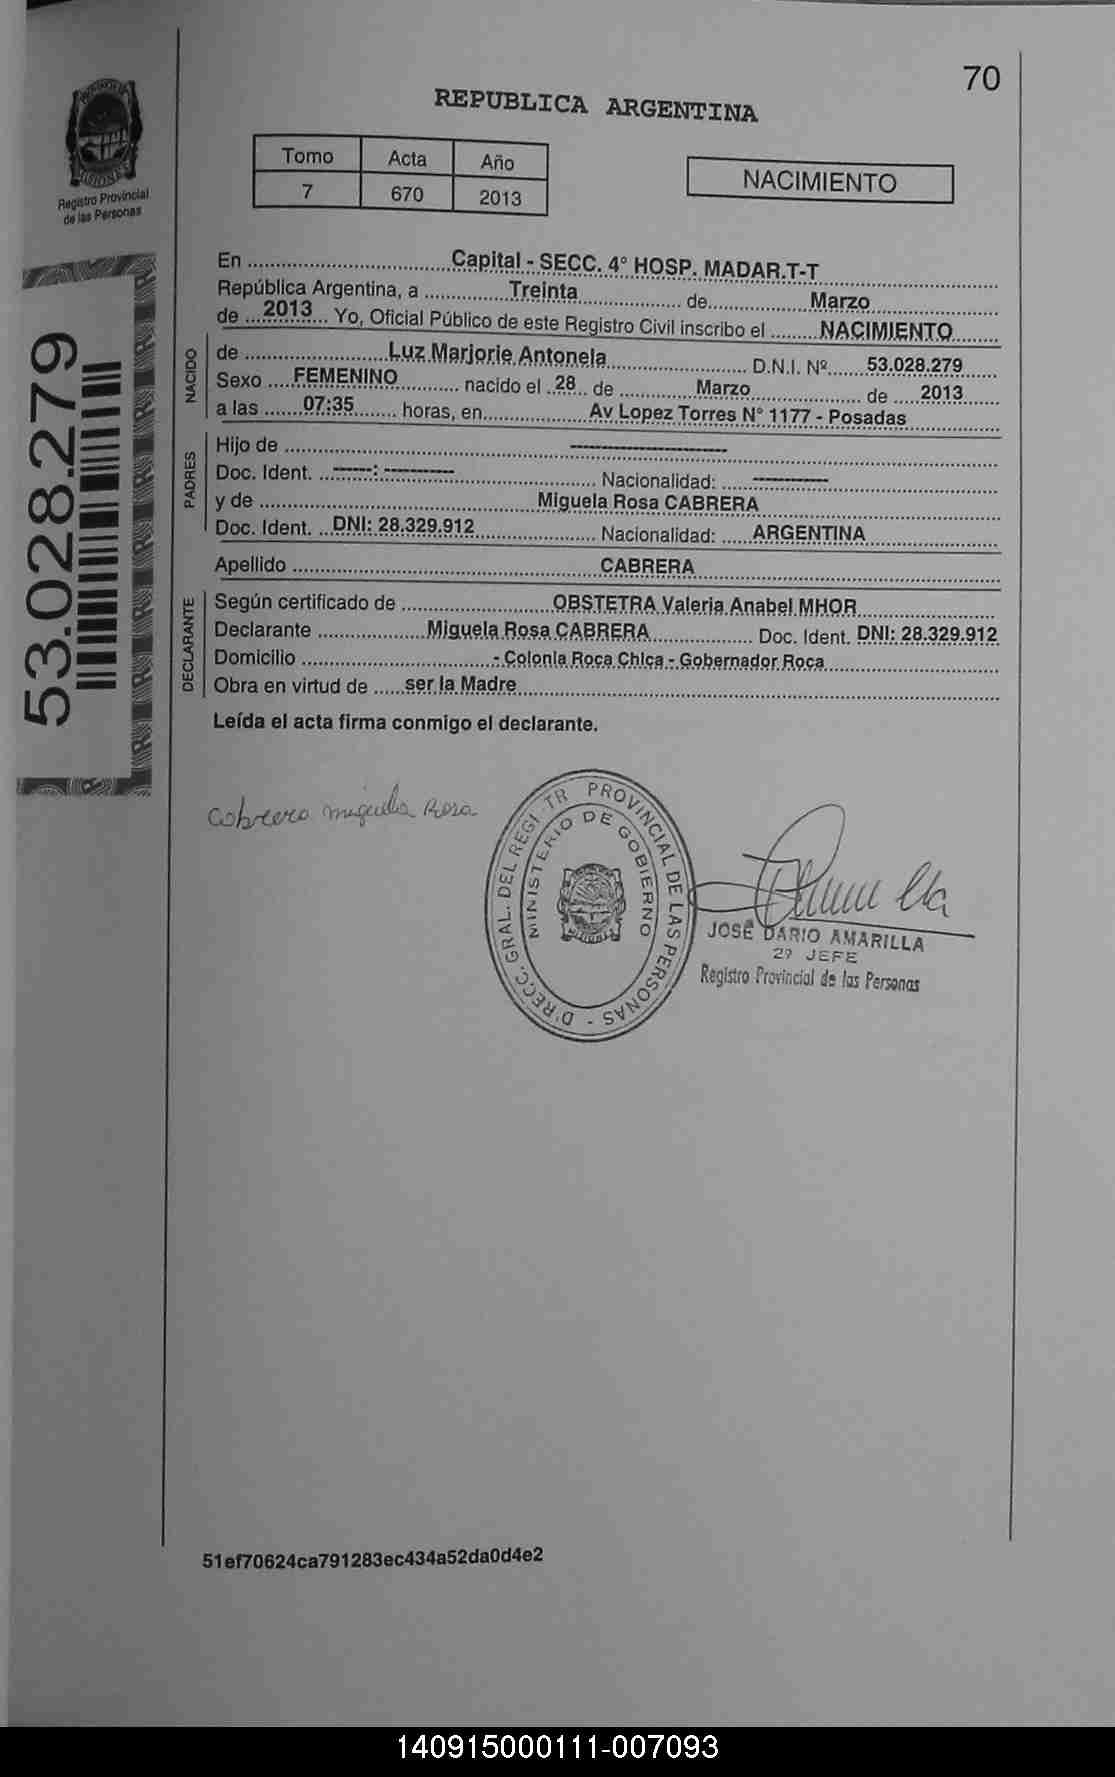 70
REPUBLICA ARGENTINA
Tomo Acta Año
7 670 2013
NACIMIENTO
Registro Provincial
de las Personas
53.028.279
En ............ Capital - SECC. 4° HOSP. MADAR.T-T ............
República Argentina, a ............ Treinta ............ de ............ Marzo ............
de ... 2013 ... Yo, Oficial Público de este Registro Civil inscribo el ........ NACIMIENTO ........
NACIDO
de ............ Luz Marjorie Antonela ............ D.N.I. Nº ...... 53.028.279 ......
Sexo .... FEMENINO ........... nacido el .. 28 .. de ............ Marzo ............ de .... 2013 ......
a las ...... 07:35 ....... horas, en ............ Av Lopez Torres N° 1177 - Posadas ............
PADRES
Hijo de ............ ------------------- ............
Doc. Ident. .. -----: --------- ............ Nacionalidad: ..... ---------- ............
y de ............ Miguela Rosa CABRERA ............
Doc. Ident. .. DNI: 28.329.912 ............ Nacionalidad: ..... ARGENTINA ............
Apellido ............ CABRERA ............
DECLARANTE
Según certificado de ............ OBSTETRA Valeria Anabel MHOR ............
Declarante ............ Miguela Rosa CABRERA ............ Doc. Ident. DNI: 28.329.912
Domicilio ............ - Colonia Roca Chica - Gobernador Roca ............
Obra en virtud de ..... ser la Madre ............
Leída el acta firma conmigo el declarante.
Cabrera Miguela Rosa
PROVINCIAL DE LAS PERSONAS
MINISTERIO DE GOBIERNO
JOSÉ DARIO AMARILLA
2º JEFE
Registro Provincial de las Personas
51ef70624ca791283ec434a52da0d4e2
140915000111-007093